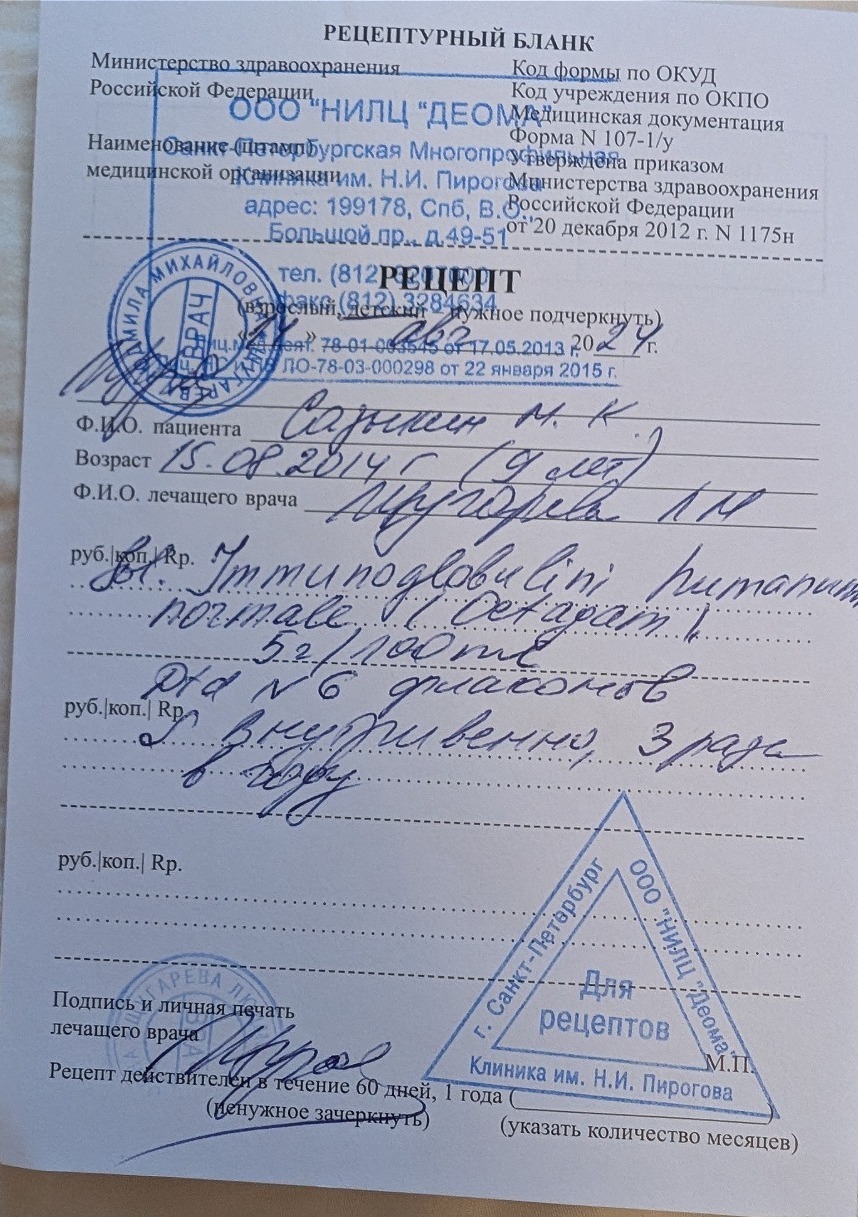 РЕЦЕПТУРНЫЙ БЛАНК
Министерство здравоохранения
Российской Федерации
Код формы по ОКУД
Код учреждения по ОКПО
Медицинская документация
Форма N 107-1/у
Утверждена приказом
Министерства здравоохранения
Российской Федерации
от 20 декабря 2012 г. N 1175н
Наименование (штамп)
медицинской организации
ООО "НИЛЦ "ДЕОМА"
Санкт-Петербургская Многопрофильная
Клиника им. Н.И. Пирогова
адрес: 199178, Спб, В.О.,
Большой пр., д.49-51
тел. (812)
факс (812) 3284634
78-01-003545 от 17.05.2013 г.
ЛО-78-03-000298 от 22 января 2015 г.
ЛЮДМИЛА МИХАЙЛОВНА
ВРАЧ
РЕЦЕПТ
(взрослый, детский - нужное подчеркнуть)
" авг 2024 г.
Ф.И.О. пациента М. К.
Возраст 15.08.2014 г (9 лет)
Ф.И.О. лечащего врача Л М
руб.|коп.| Rp.
Immunoglobulini humanum
normale (Octagam)
5г/100 ml
Dtd N 6 флаконов
руб.|коп.| Rp.
S внутривенно, 3 раза
в году
руб.|коп.| Rp.
г. Санкт-Петербург
ООО "НИЛЦ "Деома"
Клиника им. Н.И. Пирогова
Для
рецептов
Подпись и личная печать
лечащего врача
М.П.
Рецепт действителен в течение 60 дней, 1 года (
)
(ненужное зачеркнуть)
(указать количество месяцев)